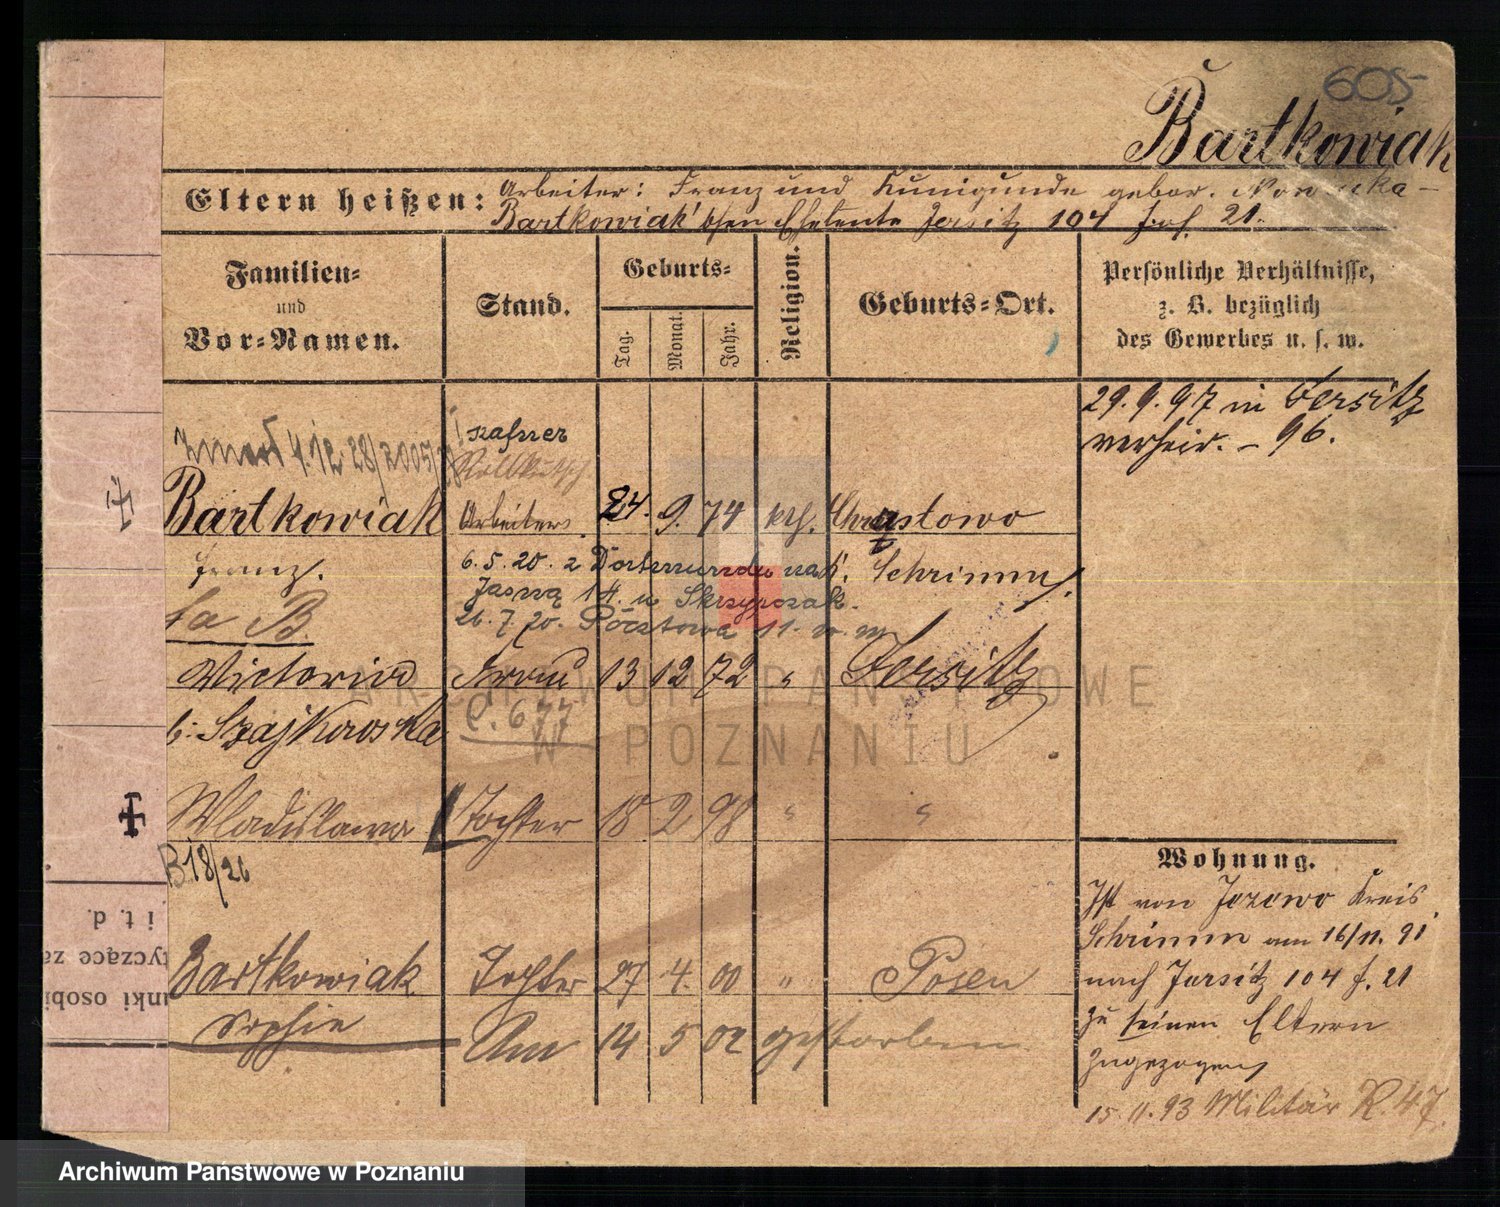 605
Bartkowiak
Eltern heißen: Arbeiter: Franz und Kunigunde gebor. Nowicka-
Bartkowiak'schen Eheleute Jersitz 104 f. 21.
Familien-
und
Vor-Namen.
Stand.
Geburts-
Tag.
Monat.
Jahr.
Religion.
Geburts-Ort.
Persönliche Verhältnisse,
z. B. bezüglich
des Gewerbes u. s. w.
29.9.97 in Jersitz
verheir. - 96.
4.12.28/2005
Bartkowiak Arbeiter 24. 9. 74 kth. Chrząstowo
Franz. Schrimm.
6.5.20. z Dortmundu na
Jasną 14. u Skrzypczak.
26.7.20. Pocztowa 11.
B.
Victoria Frau 13 12 72 " Jersitz
C. 677
b: Szajkowska
Wladislawa Tochter 18 2 98 " "
B18/26
Bartkowiak Tochter 27 4. 00 " Posen
Sophie
Am 14 5 02 gestorben
Wohnung.
Ist von Jezewo Kreis
Schrimm am 16/11. 91
nach Jersitz 104 f. 21
zu seinen Eltern
zugezogen
15.11.93 Militär R.47.
i t. d.
tyczące za
unki osobi
ARCHIWUM PAŃSTWOWE
W POZNANIU
Archiwum Państwowe w Poznaniu